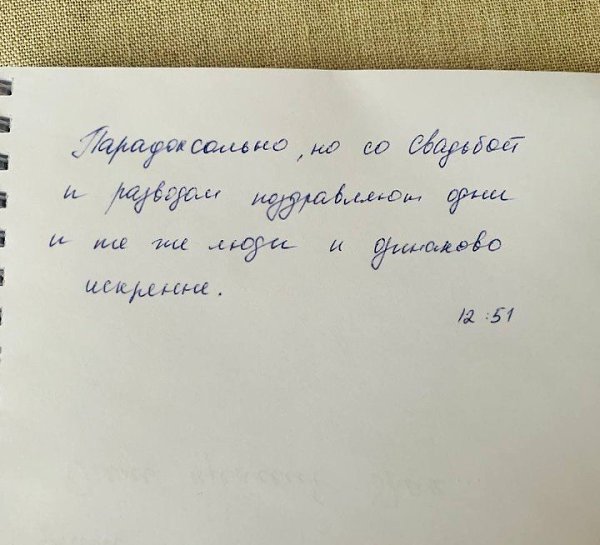 Парадоксально, но со свадьбой
и разводом поздравляют одни
и те же люди и одинаково
искренне.
12:51